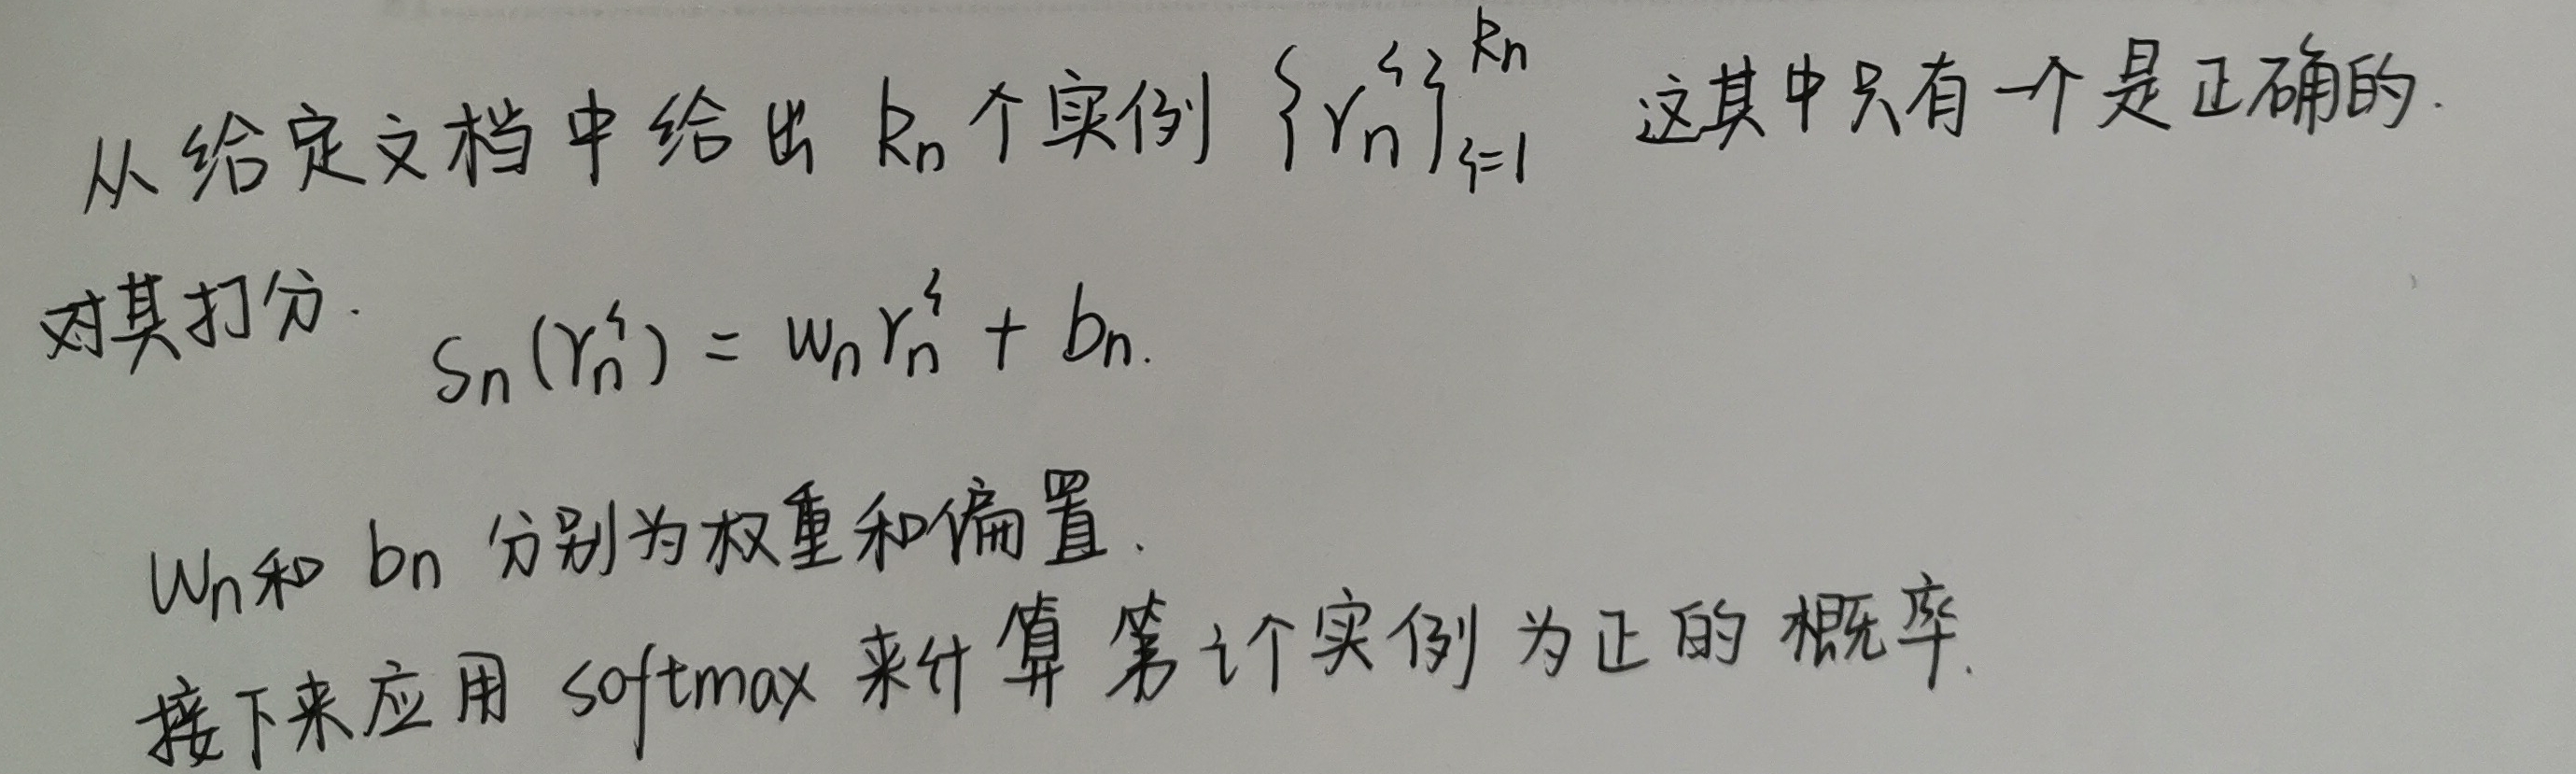 从给定文档中给出 kn 个实例 {rn^i}_{i=1}^{kn} 这其中只有一个是正确的.
对其打分. Sn(rn^i) = wn rn^i + bn.
wn和 bn 分别为权重和偏置.
接下来应用 softmax 来计算第i个实例为正的概率.